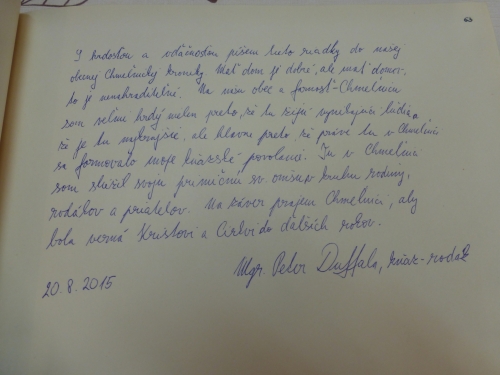 63
S radosťou a vďačnosťou píšem tieto riadky do našej
obecnej Chmeľnickej kroniky. Mať dom je dobré, ale mať domov,
to je nenahraditeľné. Na našu obec a farnosť - Chmeľnicu
som veľmi hrdý nielen preto, že tu žijú vynikajúci ľudia a
že je tu najkrajšie, ale hlavne preto, že práve tu v Chmeľnici
sa formovalo moje kňazské povolanie. Tu v Chmeľnici
som slúžil svoju primičnú sv. omšu v kruhu rodiny,
rodákov a priateľov. Na záver prajem Chmeľnici, aby
bola verná Kristovi a Cirkvi do ďalších rokov.
Mgr. Peter Duffala, kňaz-rodák
20.8.2015